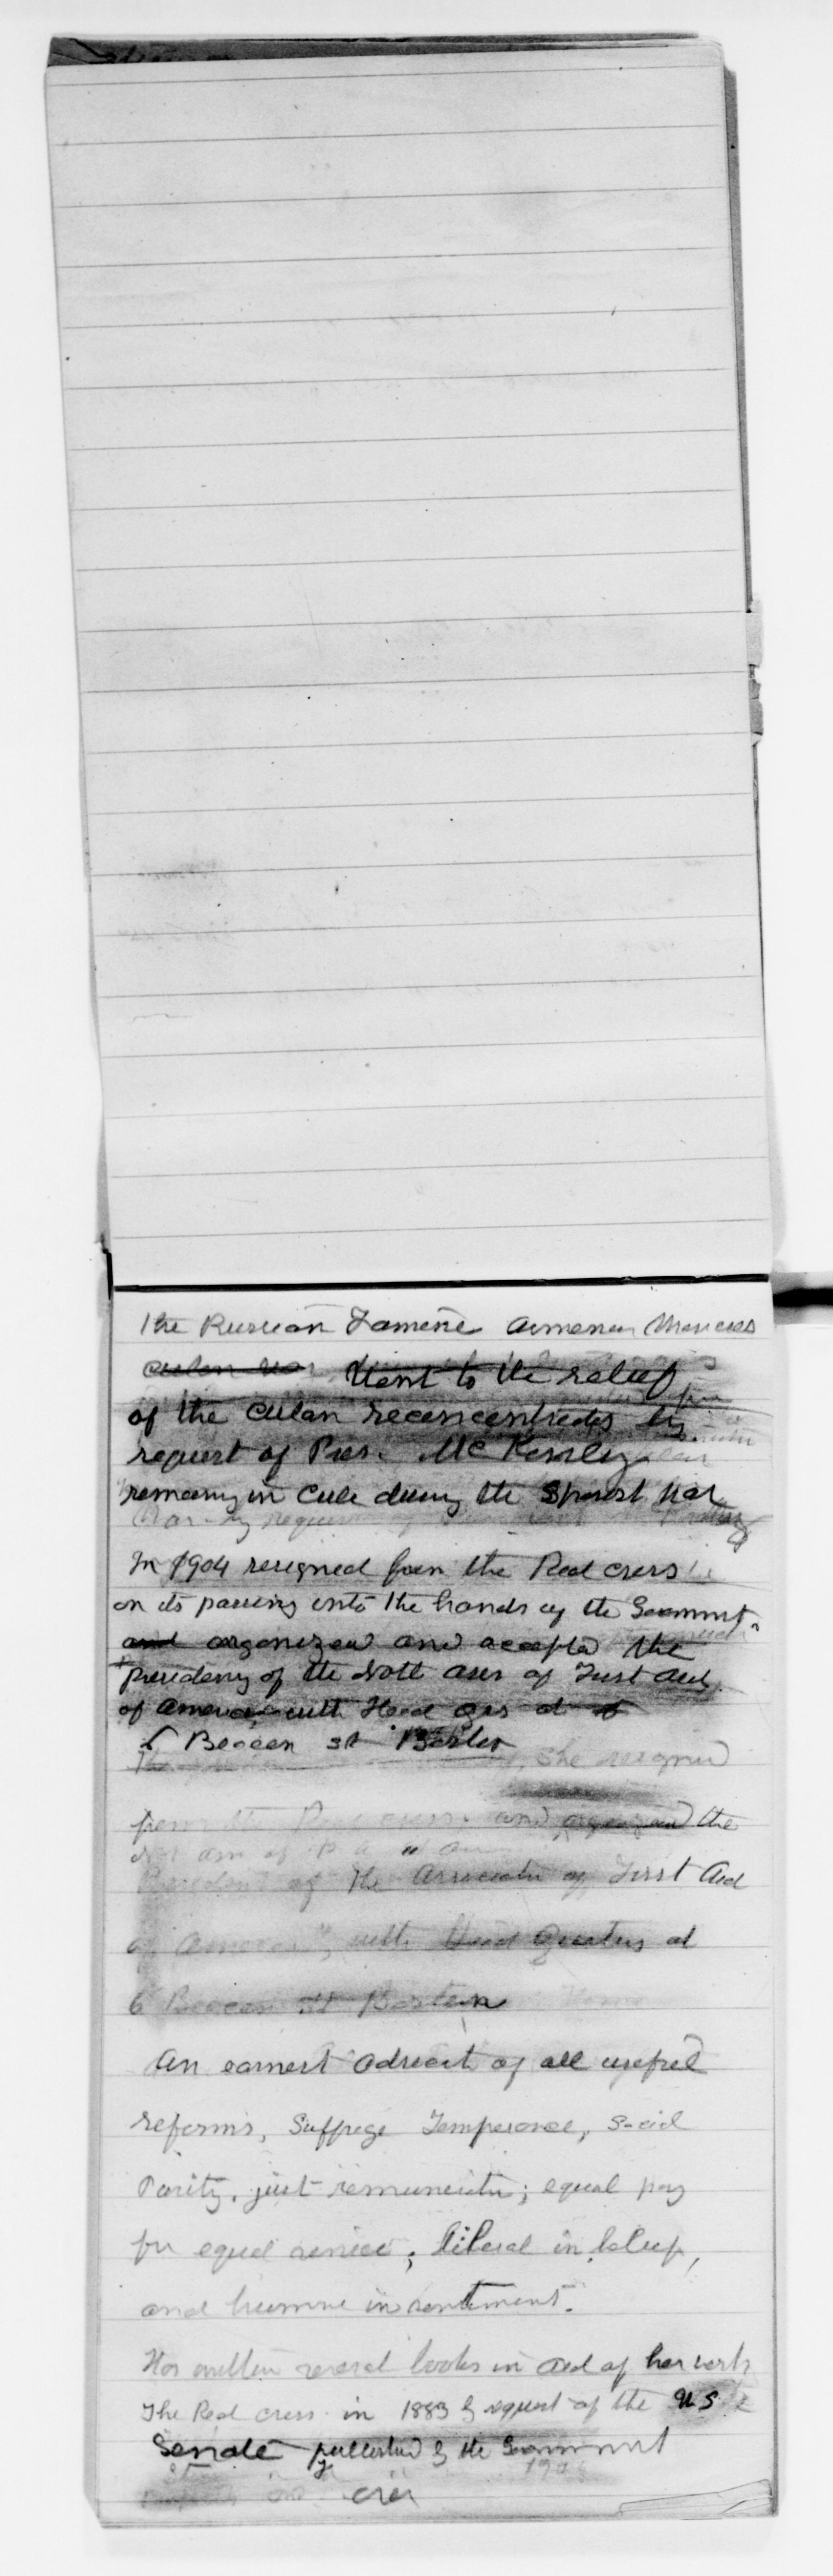 The Russian Famine Armenian Massacres
Cuban war Went to the relief
of the Cuban reconcentrados by
request of Pres. McKinley
remaing in Cuba during the Spanish War
War by request
In 1904 resigned from the Red Cross
on its passing into the hands of the Governmt
and organized and accepted the
Presidency of the Natl Assn of First Aid
of America with Head Qrs at
6 Beacon st Boston
she resigned
from the Red Cross and organized the
President of the Association of First Aid
of America", with Head Quarters at
6 Beacon St Boston
An earnest advocate of all useful
reforms, Suffrage Temperance, Social
Purity, just remuneration; equal pay
for equal service; liberal in belief,
and humane in sentiment.
Has written several books in aid of her work
The Red Cross in 1883 by request of the U S
Senate published by the Government